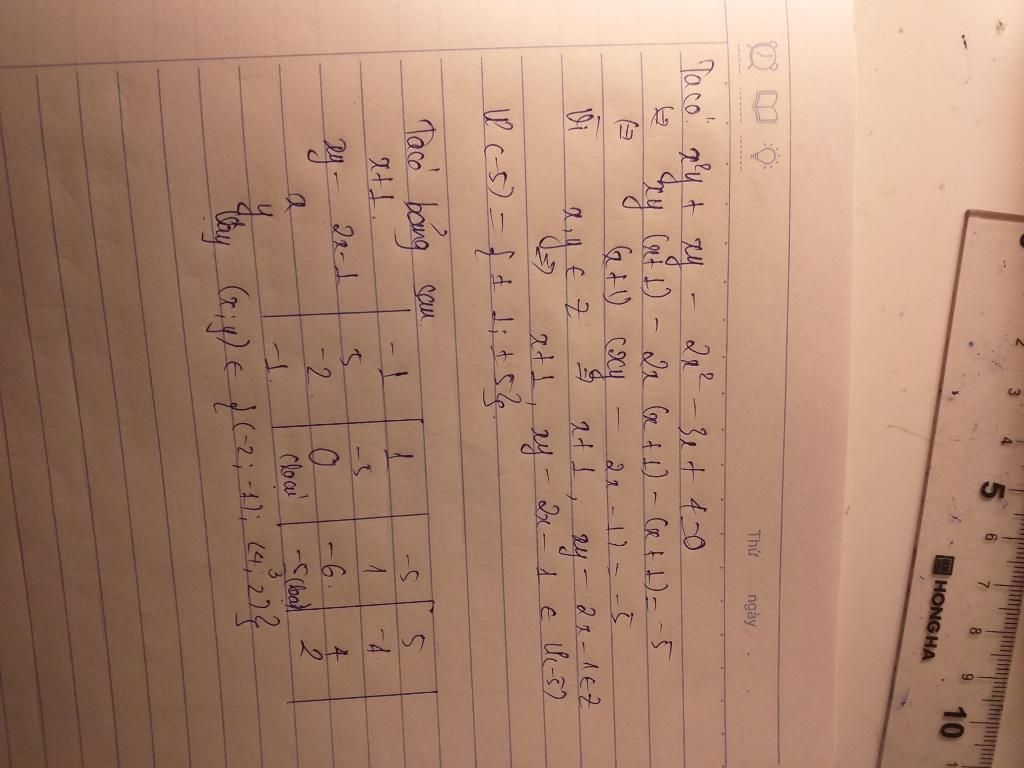 Thứ
ngày
Ta có: x²y + xy - 2x² - 3x + 4 = 0
⇔ xy (x+1) - 2x (x+1) - (x+1) = -5
⇔ (x+1) (xy - 2x - 1) = -5
Vì x, y ∈ Z ⇒ x+1, xy - 2x - 1 ∈ Z
⇒ x+1, xy - 2x - 1 ∈ Ư(-5)
Ư(-5) = {±1; ±5}
Ta có bảng sau
x+1 -1 1 -5 5
xy - 2x - 1 5 -5 1 -1
x -2 0 -6 4
y -1 (loại) -5/3 (loại) 2
Vậy (x; y) ∈ {(-2; -1); (4; 2)}
2 3 4 5 6 7 8 9 10
HONG HA